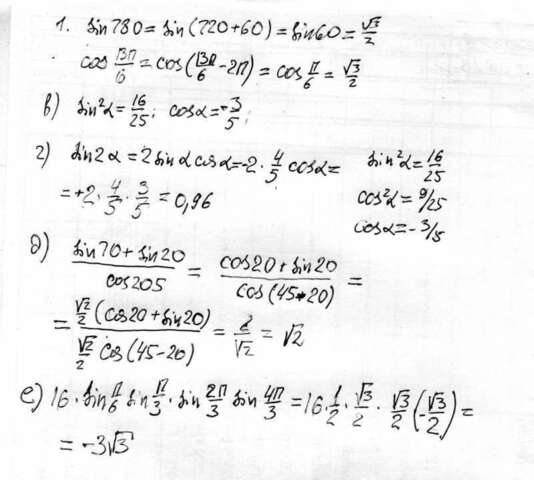 1. sin780 = sin(720+60) = sin60 = √3/2
cos 13π/6 = cos(13π/6 - 2π) = cos π/6 = √3/2
в) sin²α = 16/25; cosα = -3/5;
г) sin2α = 2 sinα cosα = -2 · 4/5 cosα = sin²α = 16/25
= +2 · 4/5 · 3/5 = 0,96 cos²α = 9/25
cosα = -3/5
д) (sin70 + sin20)/cos205 = (cos20 + sin20)/cos(45-20) =
= (√2/2 (cos20 + sin20))/(√2/2 cos(45-20)) = 2/√2 = √2
е) 16 · sin π/6 sin π/3 · sin 2π/3 sin 4π/3 = 16 · 1/2 · √3/2 · √3/2 (-√3/2) =
= -3√3